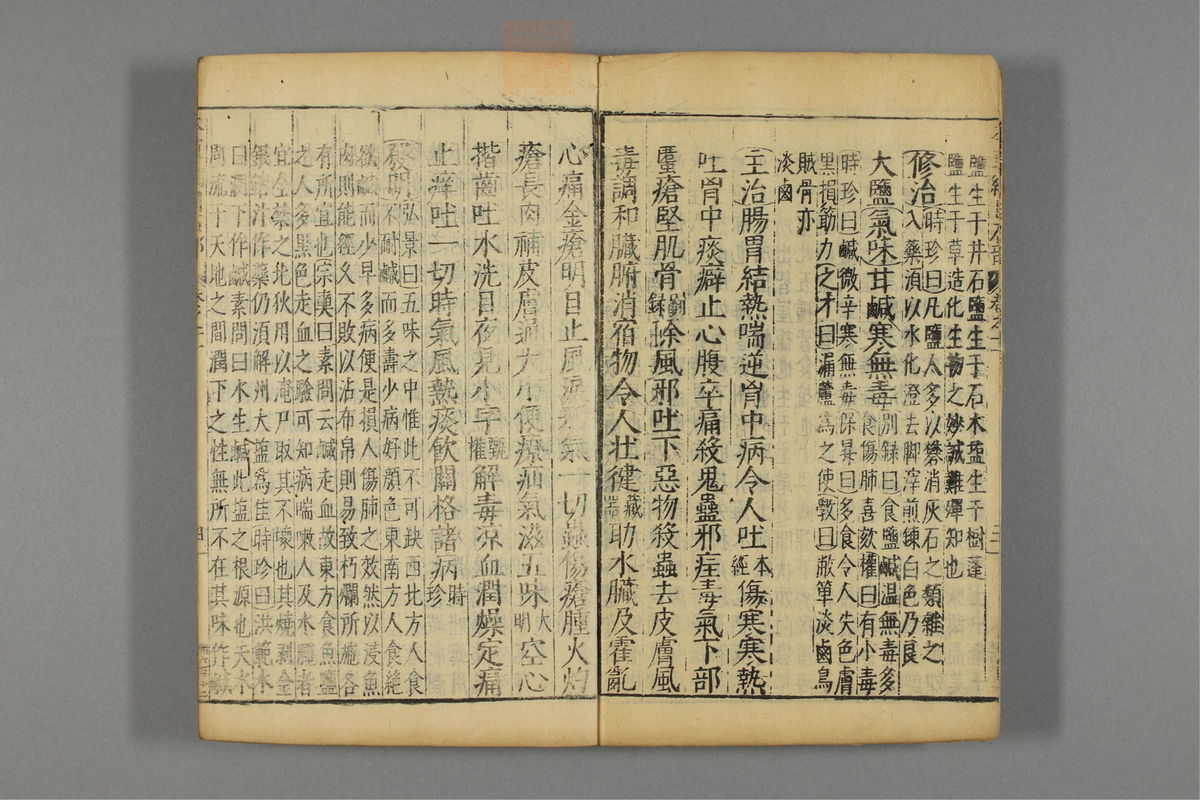 鹽生于井石鹽生于石木鹽生于樹蓬
鹽生于草造化生物之妙誠難殫知也
修治時珍曰凡鹽人多以礬消灰石之類雜之
入藥須以水化澄去脚滓煎鍊白色乃良
大鹽氣味甘鹹寒無毒別録曰食鹽鹹温無毒多
食傷肺喜欬權曰有小毒
時珍曰鹹微辛寒無毒保昇曰多食令人失色膚
黑損筋力之才曰漏蘆為之使斆曰敝箄淡鹵烏
賊骨亦
淡鹵
主治腸胃結熱喘逆胷中病令人吐本經傷寒寒熱
吐胷中痰癖止心腹卒痛殺鬼蠱邪疰毒氣下部
䘌瘡堅肌骨別録除風邪吐下惡物殺蟲去皮膚風
毒調和臟腑消宿物令人壯健藏器助水臟及霍亂
心痛金瘡明目止風淚邪氣一切蟲傷瘡腫火灼
瘡長肉補皮膚通大小便療疝氣滋五味大明空心
揩齒吐水洗目夜見小字甄權解毒涼血潤燥定痛
止癢吐一切時氣風熱痰飲關格諸病時珍
弘景曰五味之中惟此不可缺西北方人食
不耐鹹而多壽少病好顏色東南方人食絶
欲鹹而少壽多病便是損人傷肺之效然以浸魚
肉則能經久不敗以沾布帛則易致朽爛所施各
有所宜也宗奭曰素問云鹹走血故東方食魚鹽
之人多黑色走血之驗可知病喘嗽人及水腫者
宜全禁之北狄用以淹尸取其不壞也其燒剥金
銀鎔汁作藥仍須解州大鹽為佳時珍曰洪範水
曰潤下作鹹素問曰水生鹹此鹽之根源也夫水
周流于天地之間潤下之性無所不在其味作鹹